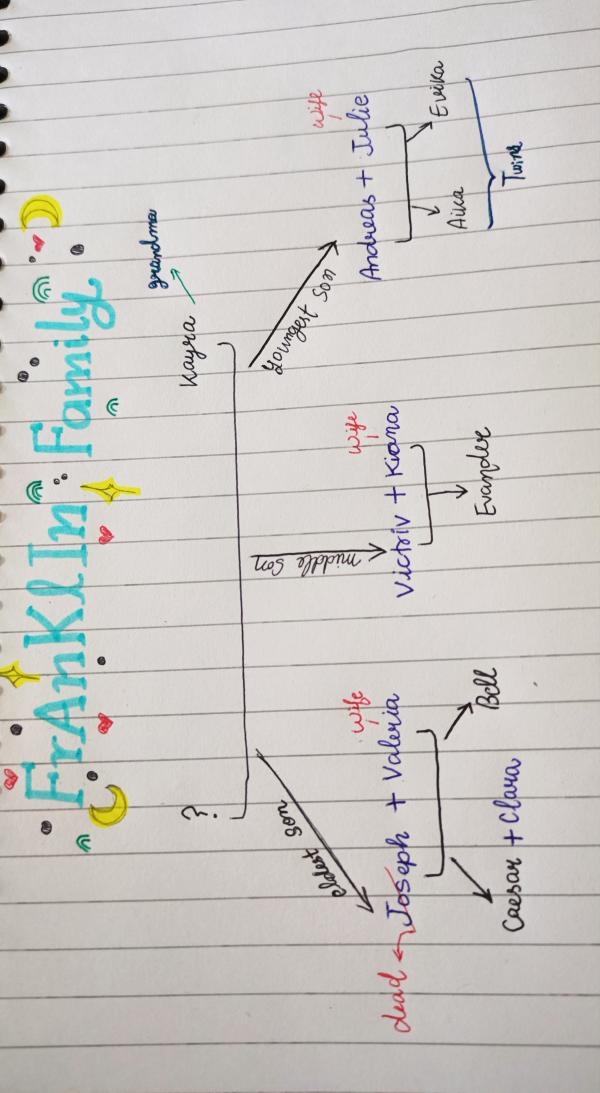 FrAnKlIn Family
? Kayra grandma
eldest son middle son Youngest Son
Wife Wife Wife
dead Joseph + Valeria Victriv + Kiana Andreas + Julie
Caesar + Clara Bell Evander Aika Evika
Twins